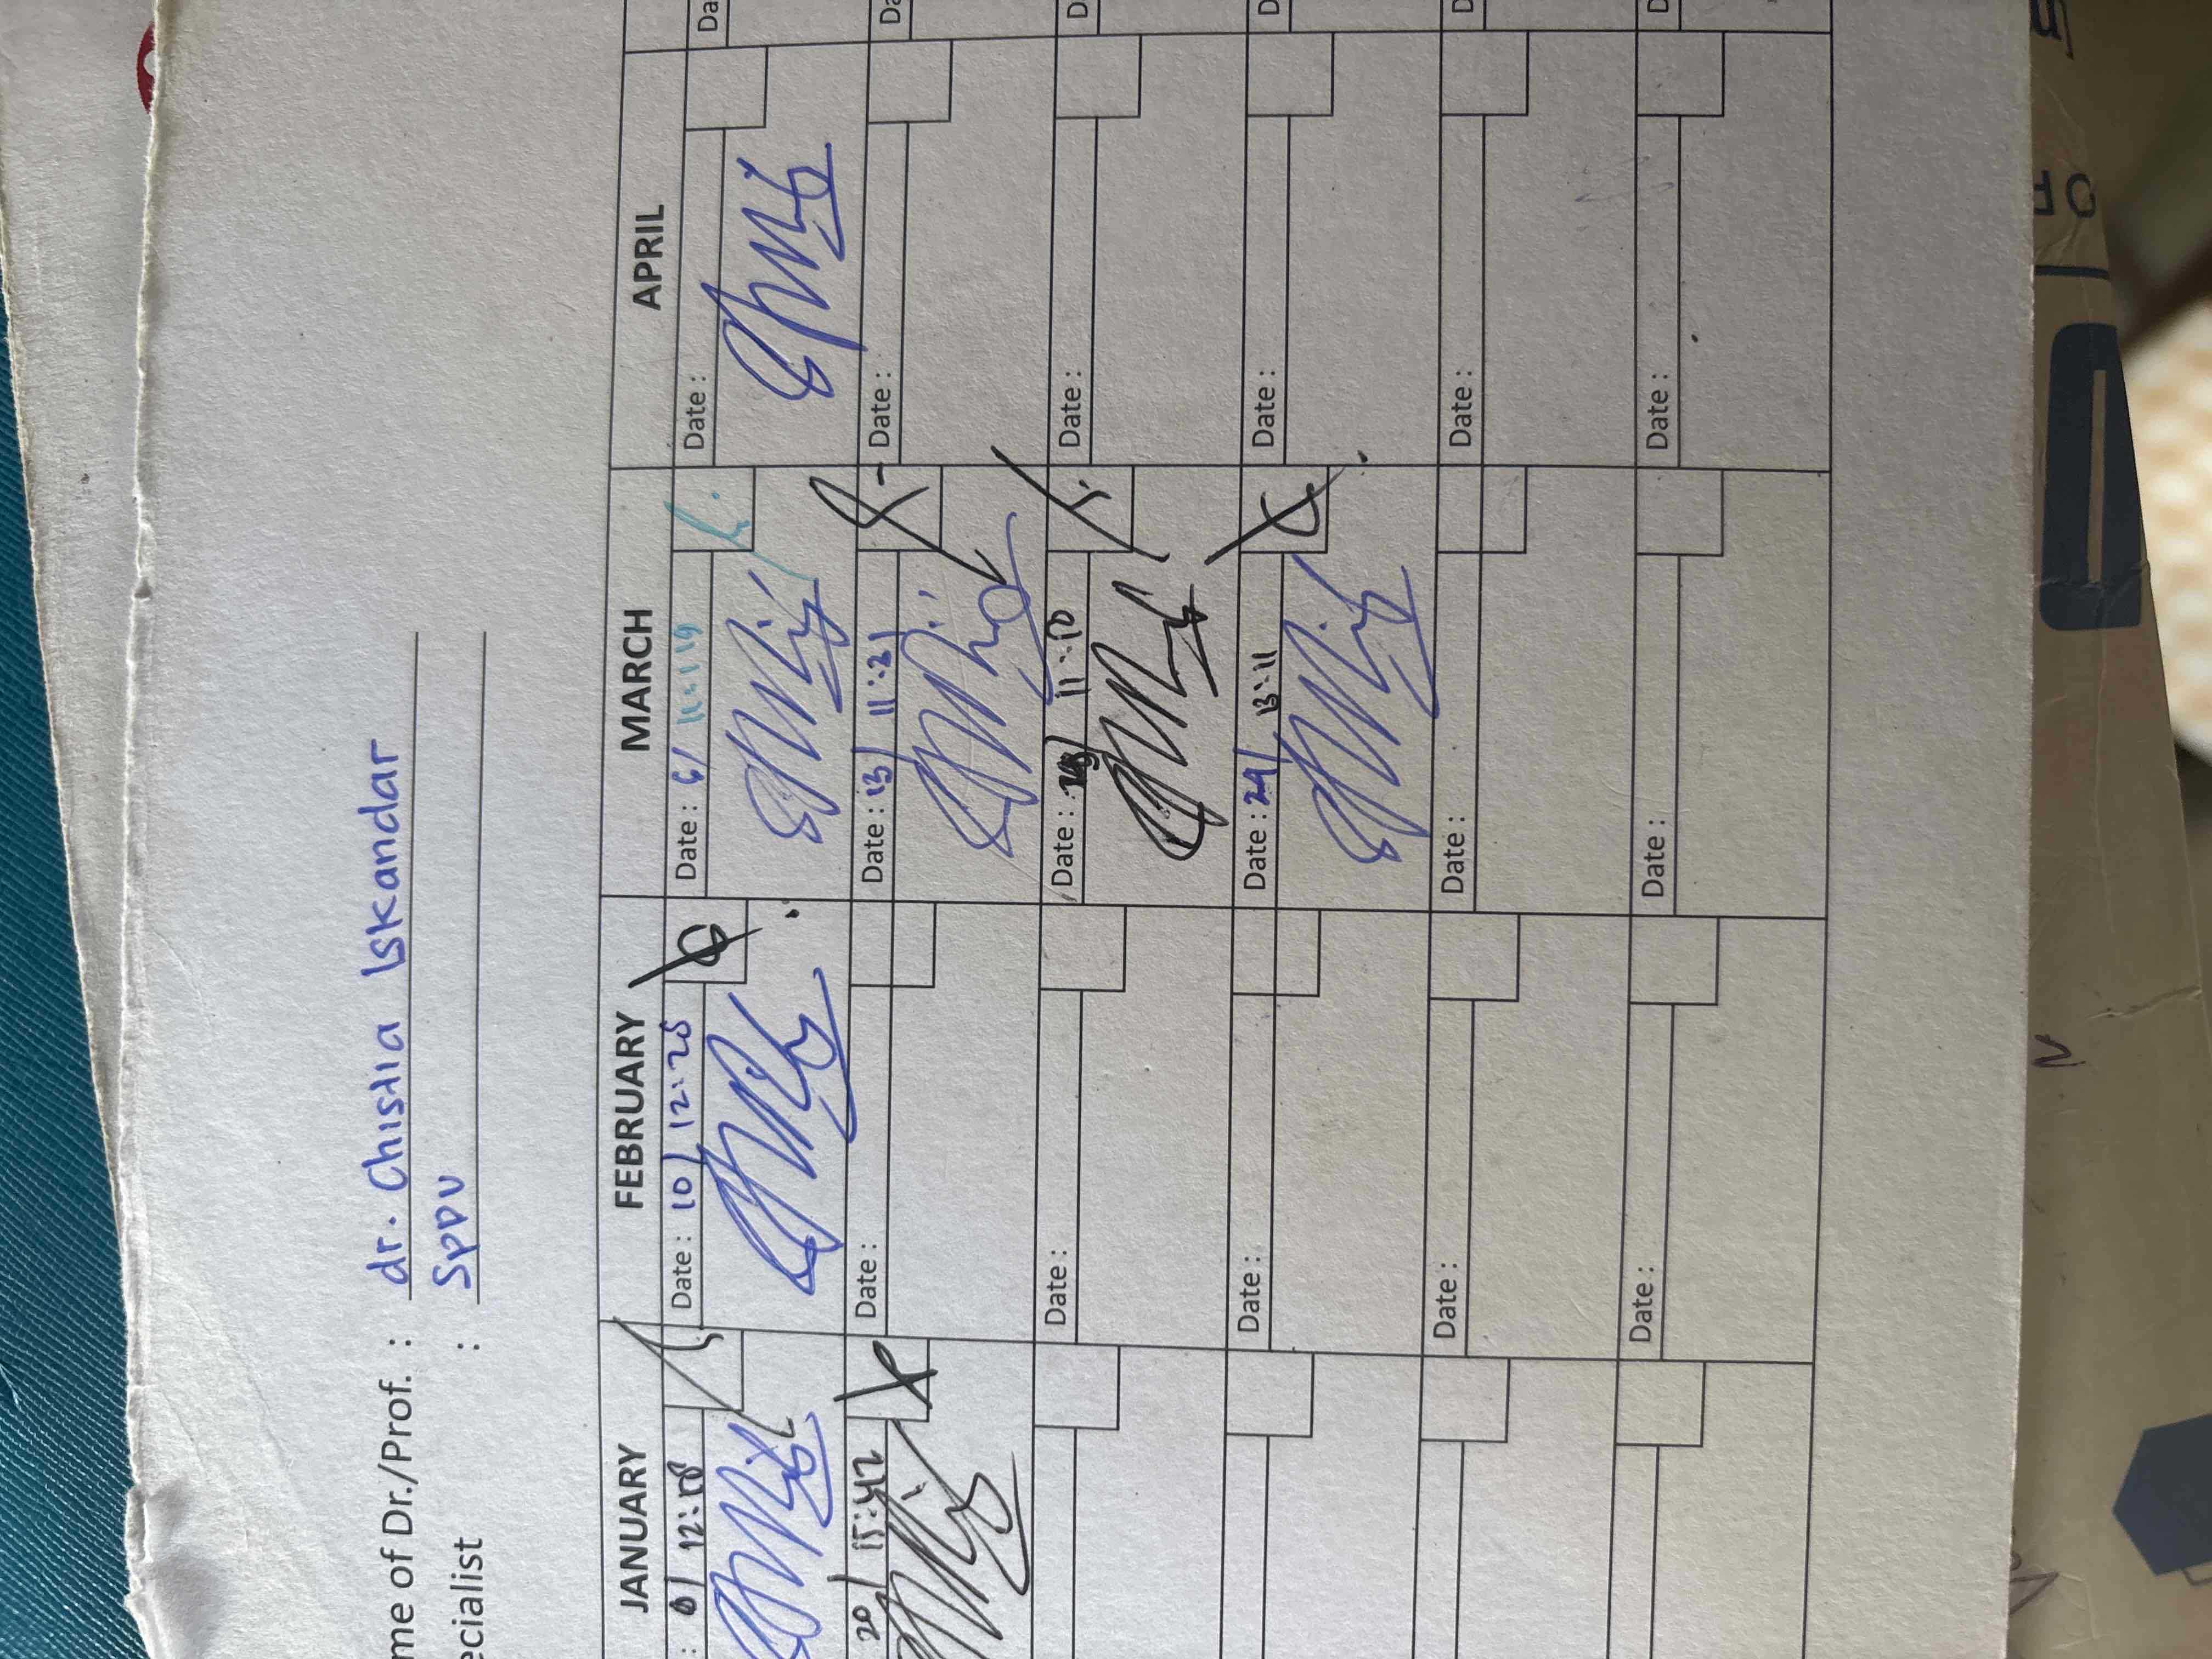 me of Dr./Prof. : dr. Chistia Iskandar
ecialist : SPPU
JANUARY FEBRUARY MARCH APRIL
: 12:08 Date : 10/ 12:25 Date : 6/ 11:19 Date : Da
20/ 15:42 Date : Date : 13/ 11:21 Date : Da
Date : Date : 11:10 Date : D
Date : Date : 24/ 13:11 Date : D
Date : Date : Date : D
Date : Date : Date : D